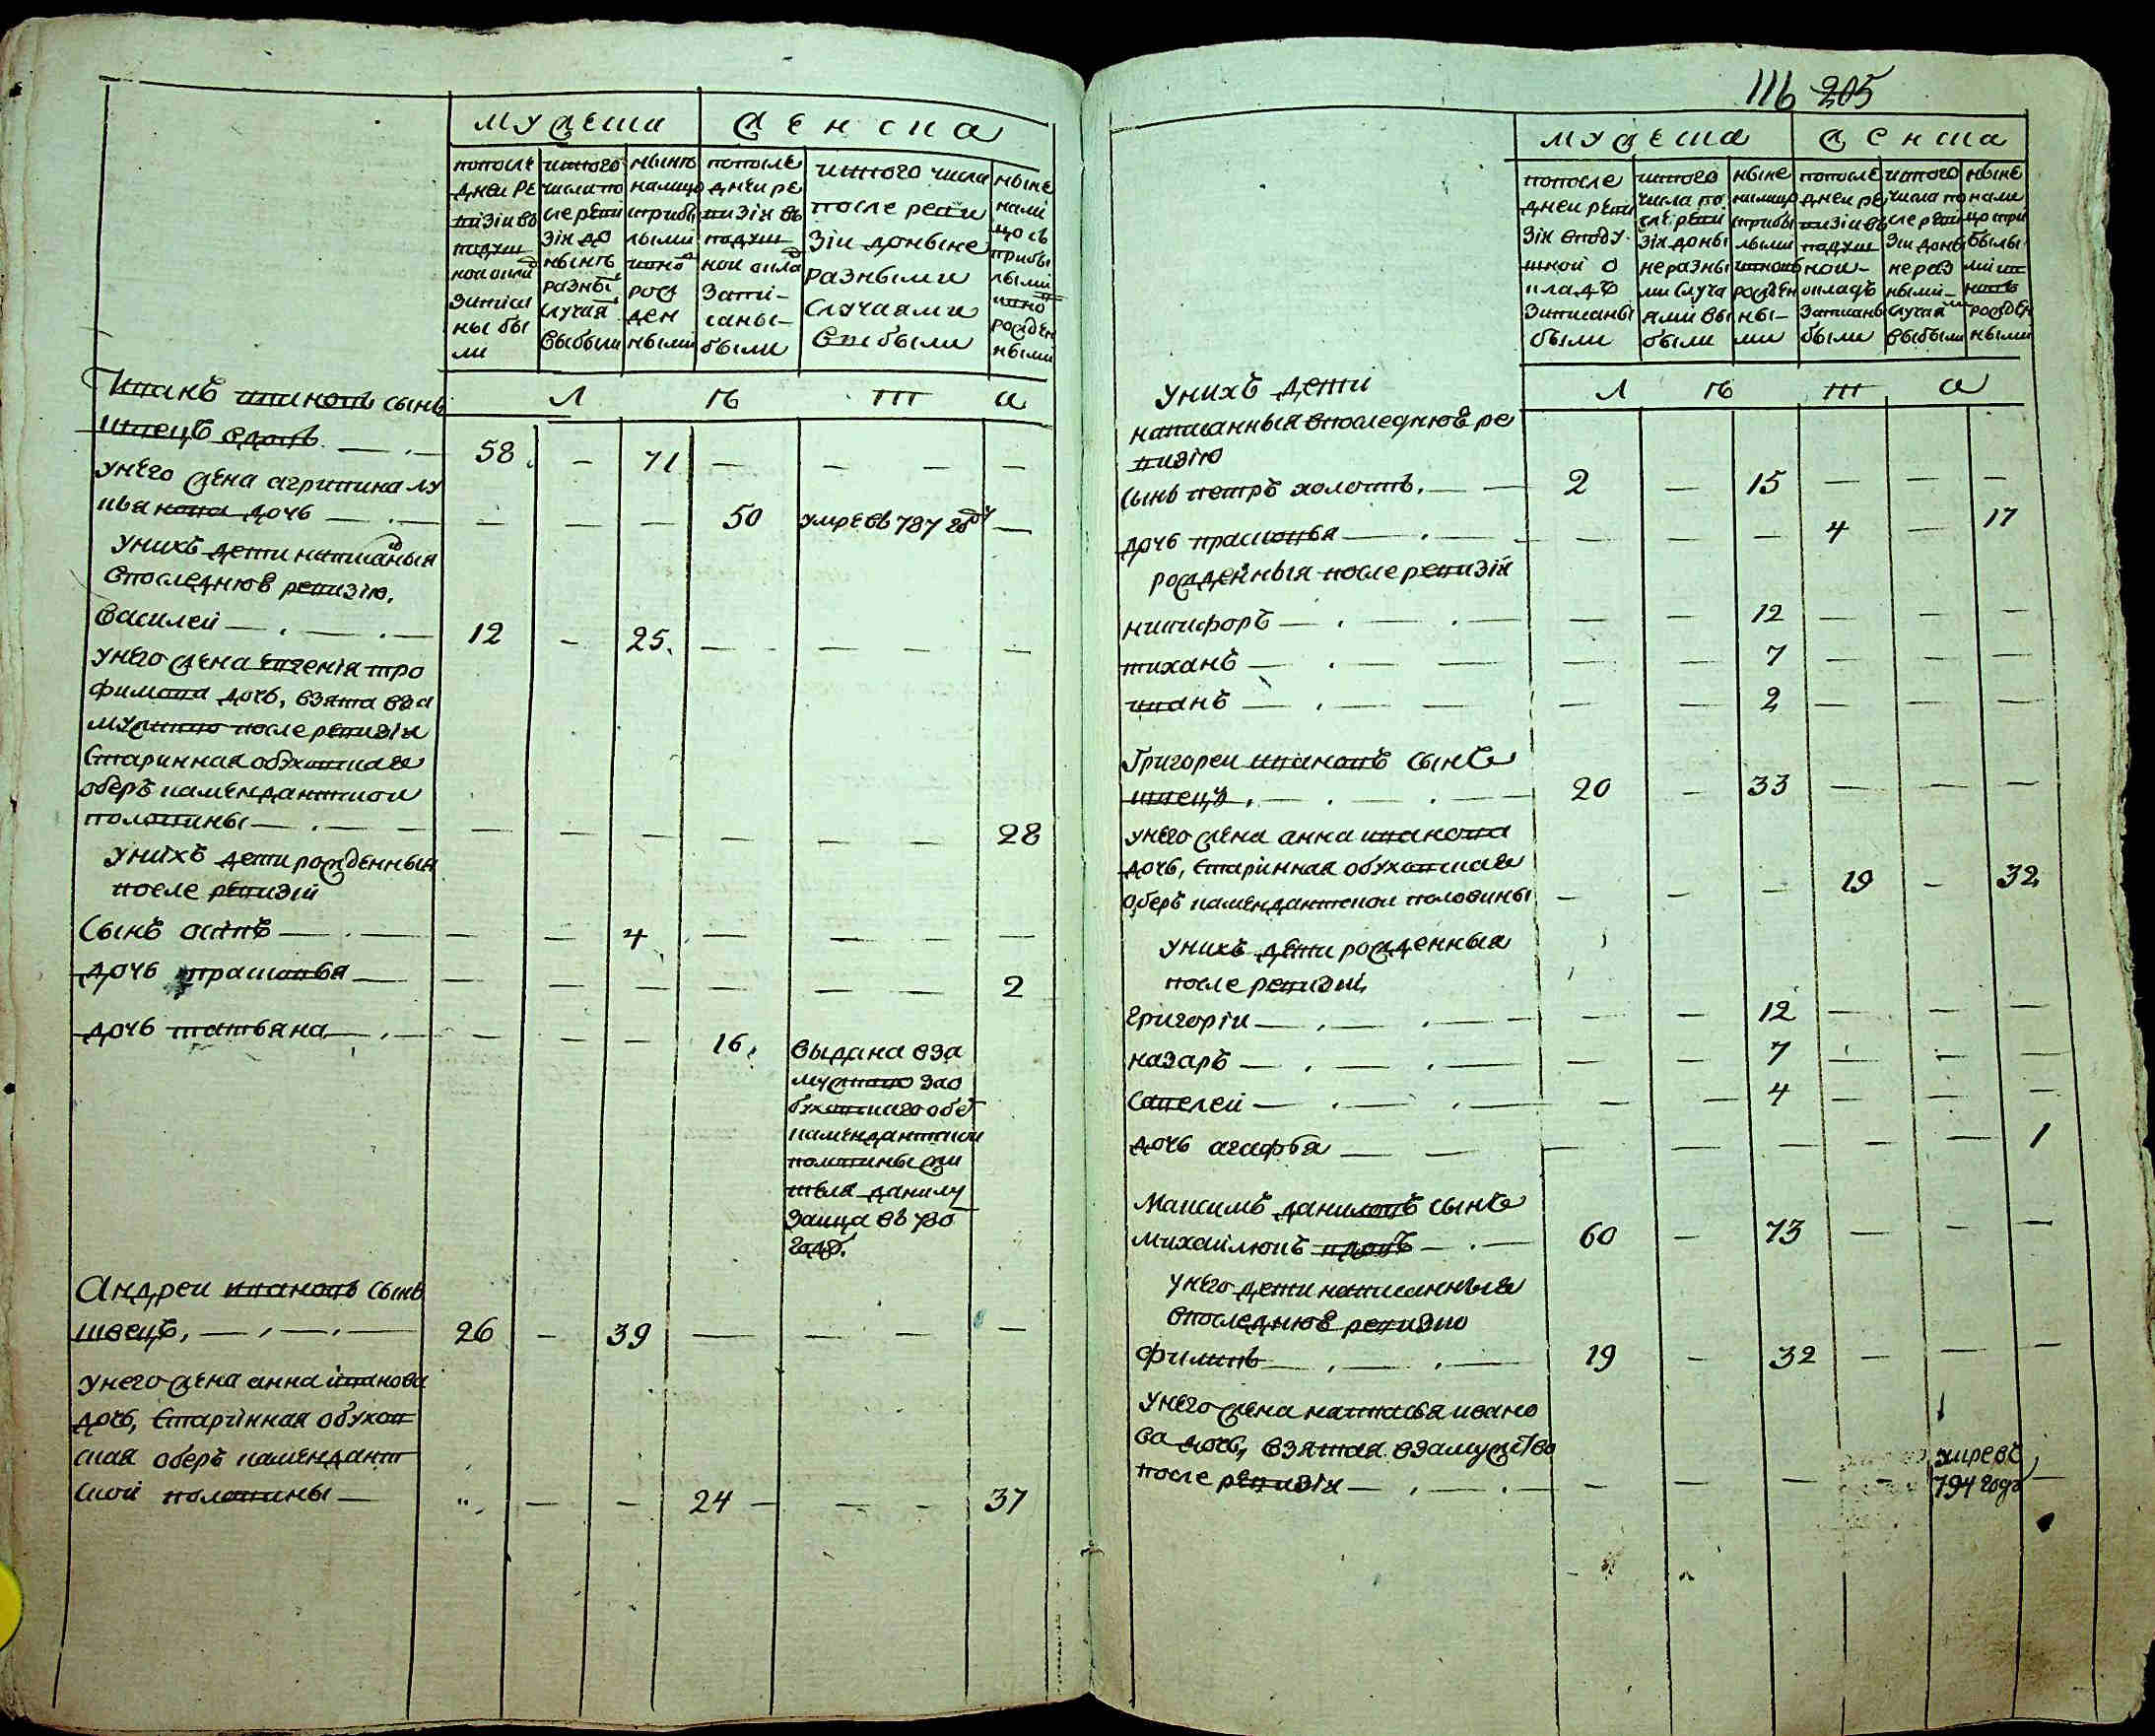 116 205
мужеска женска
попосле
дней ре
визіи въ
подуш
ной окла
записа
ны бы
ли
истого
числа по
сле реви
зіи до
нынѣ
разны
случая
выбыли
нынѣ
налицо
сприбы
лыми
ионо
рож
ден
ными
попосле
дней ре
визіи въ
подуш
ной окла
запи-
саны-
были
истого числа
после реви
зіи доныне
разными
случаями
выбыли
ныне
нали
цо съ
прибы
лыми
ионо
рожден
ными
Л Ѣ Т а
Иванъ ивановъ сынъ
швецъ вдовъ 58 - 71 - - - -
унего жена агрипина лу
кьянова дочь - - - 50 умре въ 787 году -
унихъ дети написаныя
впоследнюю ревизію.
василей 12 - 25. - - - -
унего жена евгенія тро
фимова дочь, взята вза
мужство после ревизіи
старинная обуховская
оберъ камендантской
половины - - - - - - 28
унихъ дети рожденныя
после ревизіи
Сынъ осипъ - - 4 - - - -
дочь прасковья - - - - - - 2
дочь татьяна - - - 16. выдана вза
мужство зао
буховского обе
камендантской
половины жи
теля данилу
заица въ 790
годѣ.
Андреи ивановъ сынъ
швецъ, 26 - 39 - - - -
унего жена анна иванова
дочь, старинная обухов
ская оберъ камендант
ской половины - - 24 - - - 37
мужеска женска
попосле
дней реви
зіи вподу
шной о
кладѣ
записаны
были
истого
числа по
сле реви
зіи доны
не разны
ми случа
ями вы
были
ныне
налицо
сприбы
лыми
ионовь
рожден
ны-
ми
попосле
дней ре
визіи въ
подуш
ной-
окладъ
записаны
были
истого
числа по
сле реви
зіи доны
не раз
ными-
случая
выбыли
ныне
нали
цо при
былы
ми ио
новь
рожден
ными
Л Ѣ Т а
унихъ дети
написанныя впоследнюю ре
визію
сынъ петръ холостъ. 2 - 15 - - -
дочь прасковья - - - 4 - 17
рожденныя после ревизіи
никифоръ - - 12 - - -
тиханъ - - 7 - - -
иванъ - - 2 - - -
Григореи ивановъ сынъ
швецъ. 20 - 33 - - -
унего жена анна иванова
дочь, старинная обуховская
оберъ камендантской половины - - - 19 - 32
унихъ дети рожденныя
после ревизіи,
григоріи - - 12 - - -
назаръ - - 7 - - -
савелей - - 4 - - -
дочь агафья - - - - - 1
Максимъ даниловъ сынъ
михайлюкъ вдовъ 60 - 73 - - -
унего дети написанныя
впоследнюю ревизію
филипъ 19 - 32 - - -
унего жена настасья ивано
ва дочь, взятая взамужство
после ревизіи - - - - умре въ
794 годѣ -